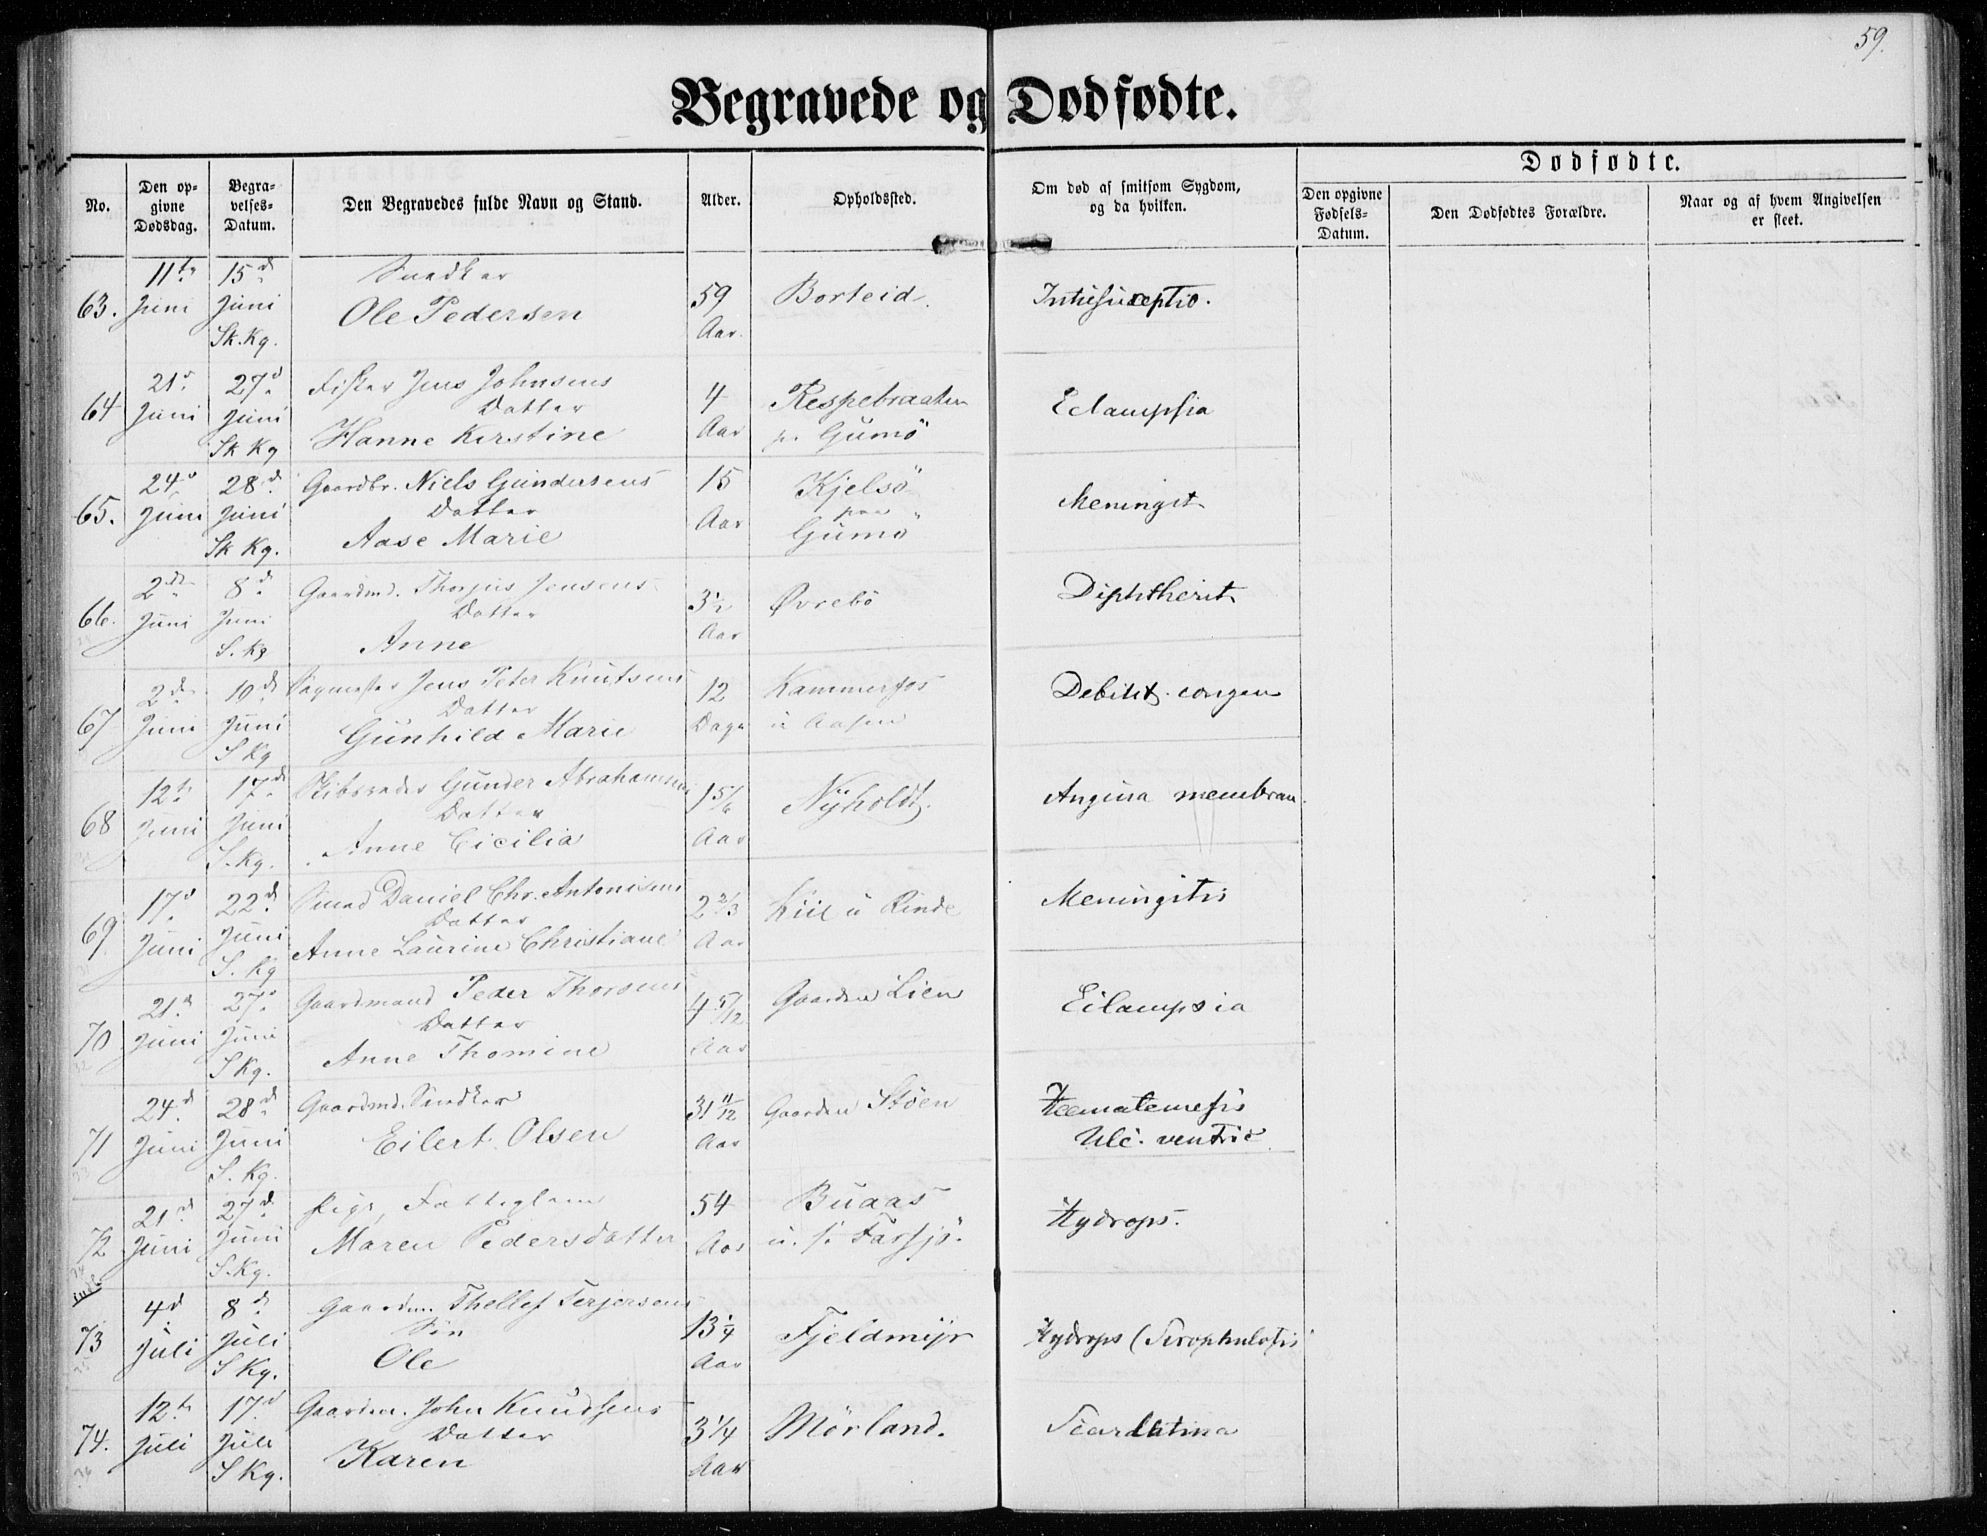 59.
Begravede og Dødfødte.
No.
Den op-
givne
Dødsdag.
Begra-
velses-
Datum.
Den Begravedes fulde Navn og Stand.
Alder.
Opholdssted.
Om død af smitsom Sygdom,
og da hvilken.
Dødfødte.
Den opgivne
Fødsels-
Datum.
Den Dødfødtes Forældre.
Naar og af hvem Angivelsen
er skeet.
63. 11te Juni 15d Juni Sk. Kg. Snedker Ole Pedersen 59 Aar. Borteid. Intususceptio.
64 21d Juni 27d Juni Sk Kg Fisker Jens Johnsens Datter Hanne Kirstine 4 Aar Respebraaten pr Gumö Eclampsia
65. 24d Juni 28d Juni Sk Kg. Gaardbr. Niels Gundersens Datter Aase Marie 15 Aar Kjelsö paa Gumö Meningit
66. 2den Juni 8d Juni S. Kg Gaardmd. Thorjus Jensens Datter Anne 3½ Aar Øvrebö Diphtherit
67 2den Juni 10d Juni S Kg Sagmester Jens Peter Knutsens Datter Gunhild Marie 12 Dage Kammerfos u Aasen Debilit. congen
68 12te Juni 17de Juni S. Kg. Gunder Abrahamsens Datter Anne Cicilia 1 5/6 Aar Nyholdt. Angina membran.
69 17d Juni 22d Juni S. Kg Smed Daniel Chr. Antonisens Datter Anne Laurine Christiane 2 2/3 Aar Kiil u Rinde Meningitis
70 21d Juni 27d Juni S Kg. Gaardmand Peder Thorsens Datter Anne Thomine 4 5/12 Aar Gaarden Lien Eilampsia
71 24d Juni 28d Juni S. Kg. Gaardmd. Snedker Eilert Olsen 31 11/12 Aar Gaarden Stöen Heematemesis Ulc. ventric
72 21d Juni 27d Juni S. Kg. Pige, Fattiglem Maren Pedersdatter 54 Aar Buaas u. Farsjö. Hydrops.
73 4d Juli 8d Juli S Kg. Gaardm. Thellef Terjersens Sön Ole 13 ¼ Aar Fjeldmyr Hydrops (Scrophulosis
74. 12te Juli 17d Juli S Kg. Gaardm. John Knudsens Datter Karen 3 ¼ Aar Mörland. Scarlatina